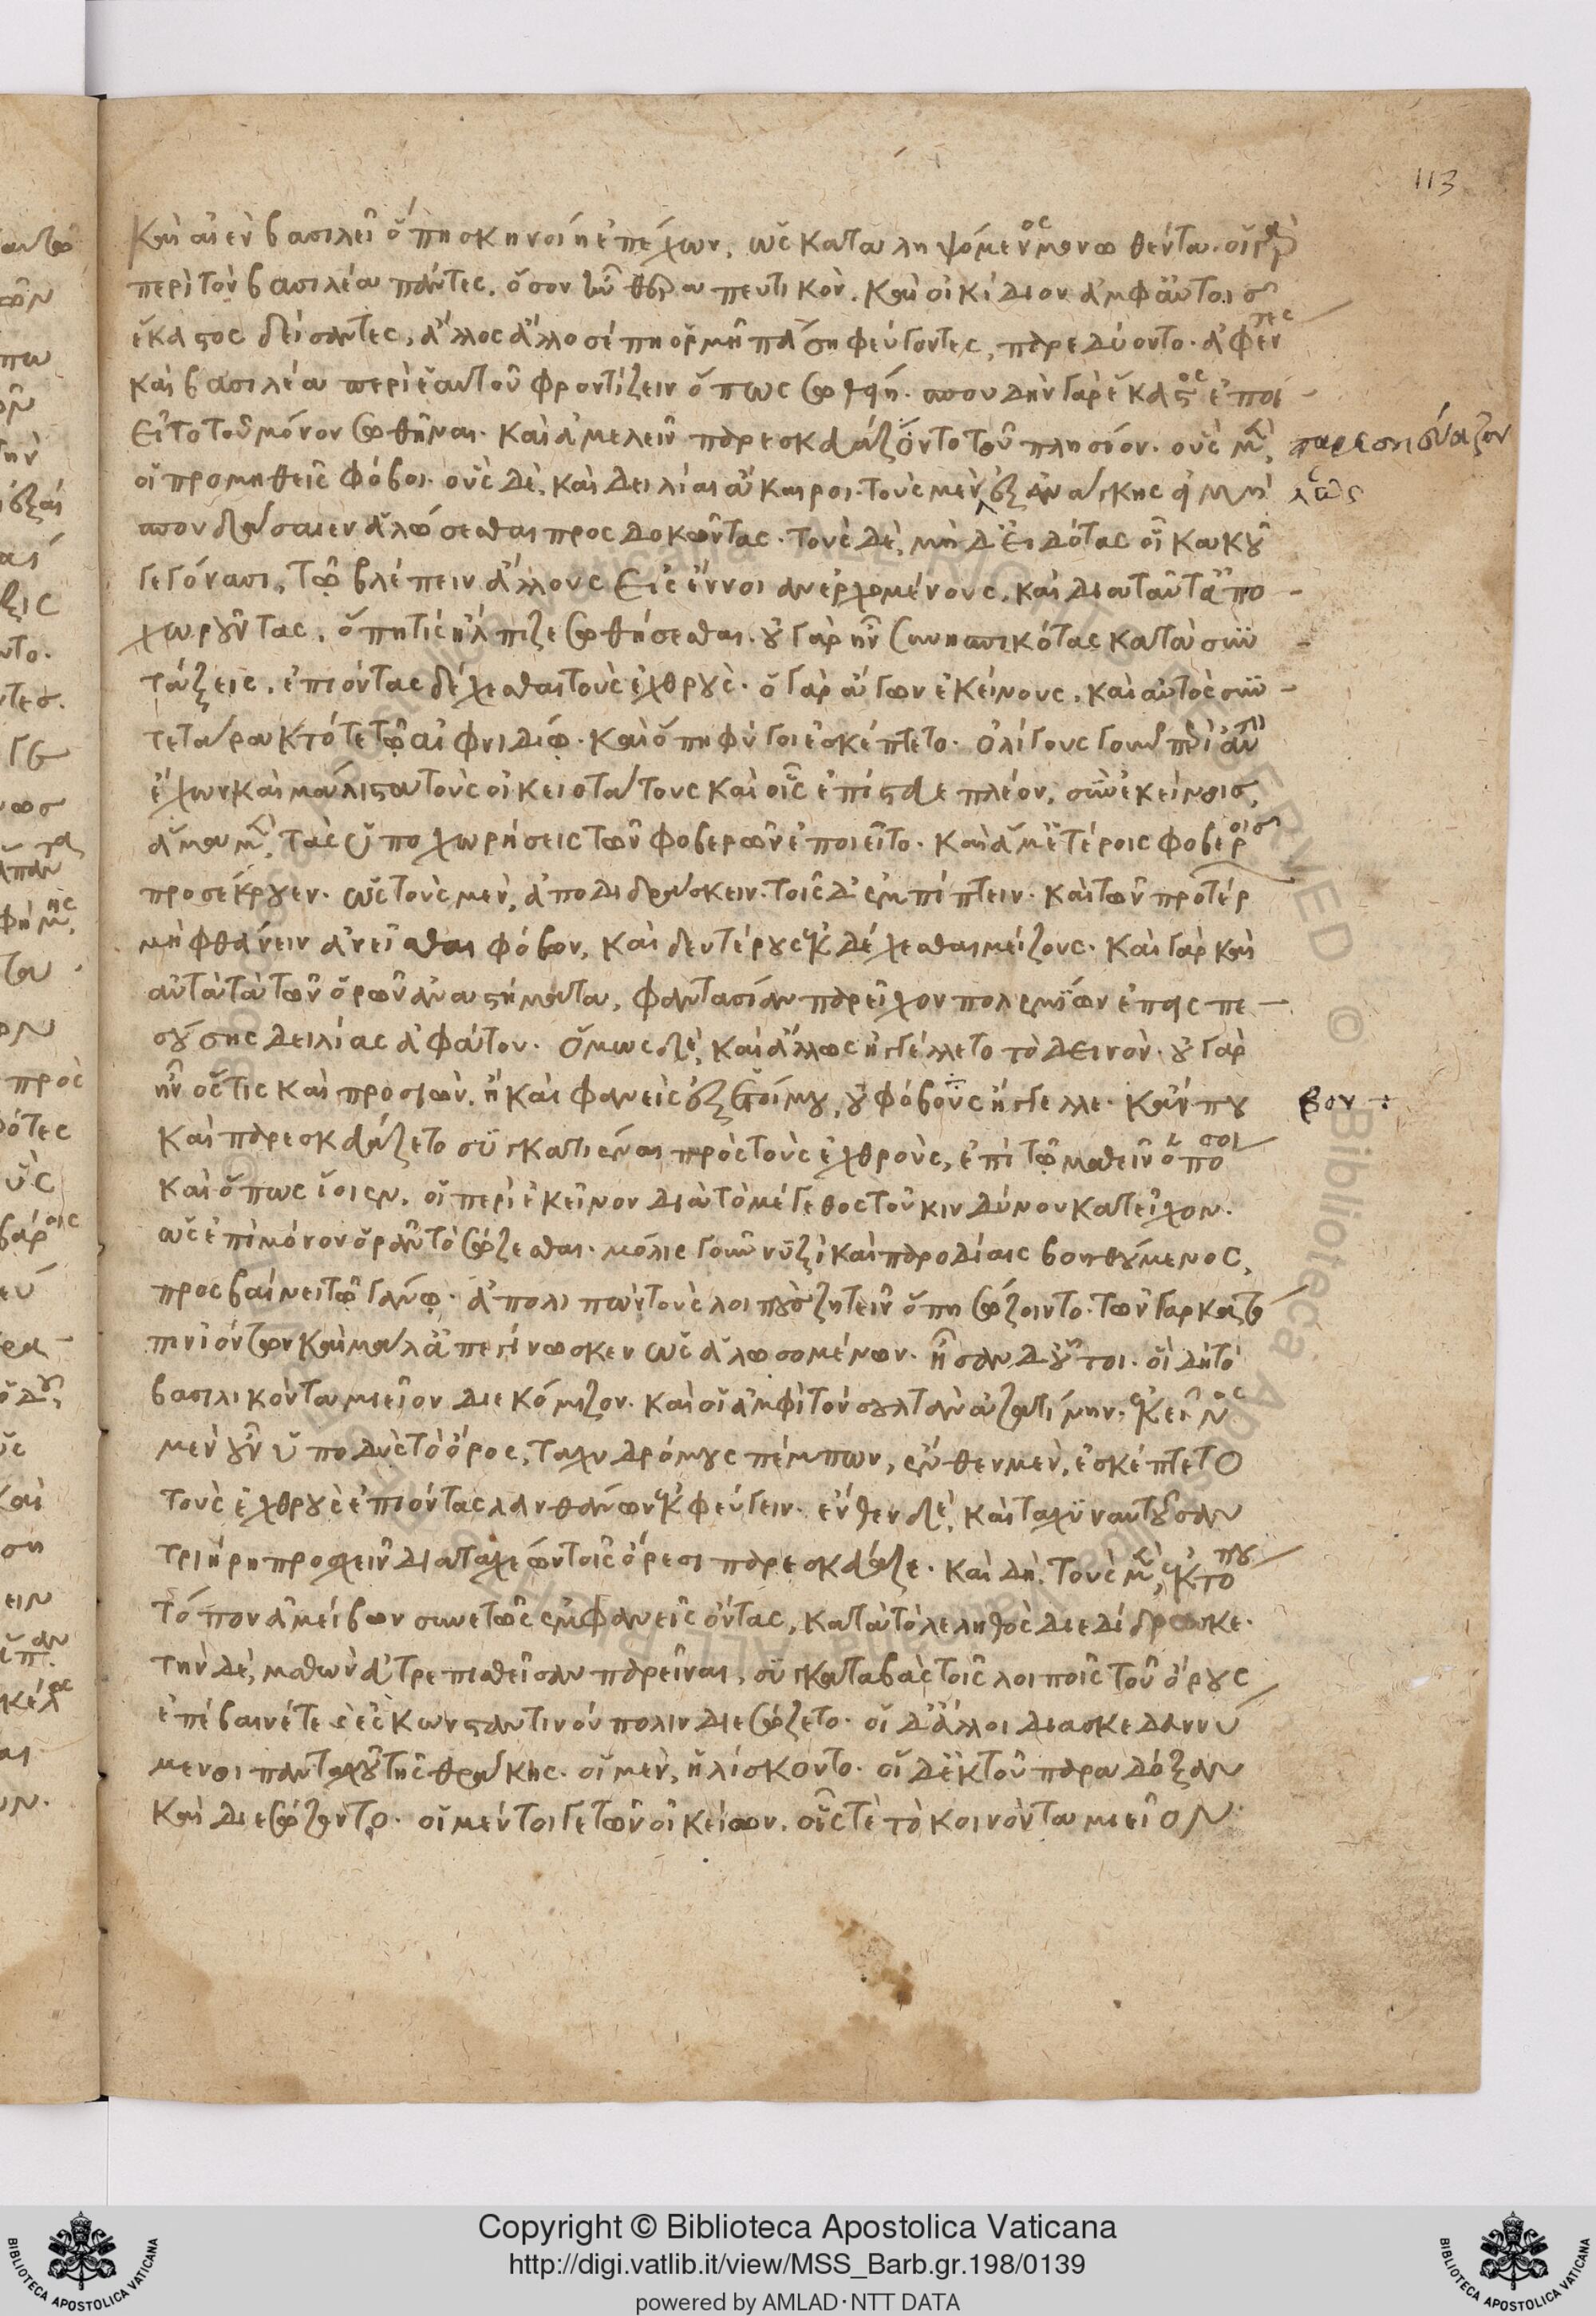 113
καὶ αἰὲν βασιλεῖ ὅπη σκηνοίη ἐπέχων, ὡς καταληψόμενος μονωθέντα. οἱ γὰρ
περὶ τὸν βασιλέα πάντες, ὅσον ἦν θεραπευτικὸν, καὶ οἰκίδιον ἀμφ' αὐτοῖς
ἕκαστος δείσαντες, ἄλλος ἄλλοσέ πη ὁρμῇ πάσῃ φεύγοντες, παρεδύοντο. ἀφέντες
καὶ βασιλέα περὶ ἑαυτοῦ φροντίζειν ὅπως σωθείη. σπουδὴν γὰρ ἕκαστος ἐποι-
εῖτο τοῦ μόνον σωθῆναι. καὶ ἀμελεῖν παρεσκευάζοντο τοῦ πλησίον. οὓς μὲν,
παρεσκεύαζον
οἱ προμηθεῖς φόβοι. οὓς δὲ, καὶ δειλίαι ἄκαιροι. τοὺς μὲν ἐξ ἀνάγκης εἰ μὴ
λ
σπουδάσαιεν ἁλώσεσθαι προσδοκῶντας. τοὺς δὲ, μὴ δ' εἰδότας οἷ κακοῦ
γεγόνασι, τῷ βλέπειν ἄλλους εἰς ἔννοιαν ἐρχομένους, καὶ διὰ ταῦτ' ἀπο-
χωροῦντας, ὅπη τίς ἤλπιζε σωθήσεσθαι. οὐ γὰρ ἦν συνησπικότας κατὰ συν-
τάξεις, ἐπιόντας δέχεσθαι τοὺς ἐχθρούς. ὁ γὰρ ἄγων ἐκείνους, καὶ αὐτὸς συν-
τετάρακτό τε τῷ αἰφνιδίῳ. καὶ ὅπη φύγοι ἐσκέπτετο. ὀλίγους γοῦν περὶ αὑτὸν
ἔχων καὶ μάλιστα τοὺς οἰκειοτάτους καὶ οἷς ἐπίστευε πλέον, σὺν ἐκείνοις,
ἅμα μὲν, τὰς ὑποχωρήσεις τῶν φοβερῶν ἐποιεῖτο. καὶ ἅμ' ἑτέροις φοβεροῖς
προσέκρουεν. ὡς τοὺς μὲν, ἀποδιδράσκειν. τοῖς δ' ἐμπίπτειν. καὶ τῶν προτέρ
μὴ φθάνειν ἀνεῖσθαι φόβον, καὶ δευτέρους ἐκδέχεσθαι μείζους. καὶ γὰρ καὶ
αὐτὰ τὰ τῶν ὀρῶν ἀναστήματα, φαντασίαν παρεῖχον πολεμίων ἐπεισπε-
σούσης δειλίας ἀφάτου. ὅμως δὲ, καὶ ἄλλως ἠγγέλλετο τὸ δεινόν. οὐ γὰρ
ἦν ὅστις καὶ προσιὼν, ἢ καὶ φανεὶς ἐξ ἑτοίμου, οὐ φόβους ἤγγελλε. κἄν που
βον
καὶ παρεσκευάζετο συγκατιέναι πρὸς τοὺς ἐχθροὺς, ἐπὶ τῷ μαθεῖν ὁπόσοι
καὶ ὅπως ἴοιεν, οἱ περὶ ἐκεῖνον διὰ τὸ μέγεθος τοῦ κινδύνου κατεῖχον.
ὡς ἐπὶ μόνον ὁρᾶν τὸ σώζεσθαι. μόλις γοῦν νυξὶ καὶ παροδίαις βοηθούμενος,
προσβαίνει τῷ γάνῳ. ἀπολιπὼν τοὺς λοιποὺς ζητεῖν ὅπη σώζοιντο. τῶν γὰρ κατό
πιν ἰόντων καὶ μάλ' ἀπεγίνωσκεν ὡς ἁλωσομένων. ἦσαν δ' οὗτοι. οἱ δὴ τὸ
βασιλικὸν ταμιεῖον διεκόμιζον. καὶ οἱ ἀμφὶ τὸν σουλτὰν ἀζατίνην. ἐκεῖνος
μὲν οὖν ὑποδὺς τὸ ὄρος, ταχυδρόμους πέμπων, ἔνθεν μὲν, ἐσκέπτετο
τοὺς ἐχθροὺς ἐπιόντας λανθάνων ἐκφεύγειν. ἔνθεν δὲ, καὶ ταχυναυτοῦσαν
τριήρη προσχεῖν διὰ ταχέων τοῖς ὄρεσι παρεσκεύαζε. καὶ δὴ, τοὺς μὲν, ἐκ τόπου
τόπον ἀμείβων συνετῶς ἐμφανεῖς ὄντας, κατὰ τὸ λεληθὸς διεδίδρασκε.
τὴν δὲ, μαθὼν ἀτρεπισθεῖσαν παρεῖναι, συγκαταβὰς τοῖς λοιποῖς τοῦ ὄρους
ἐπέβαινέ τε καὶ ἐς κωνσταντινούπολιν διεσώζετο. οἱ δ' ἄλλοι διασκεδαννύ
μενοι πανταχοῦ τῆς θράκης. οἱ μὲν, ἡλίσκοντο. οἱ δ' ἐκ τοῦ παρὰ δόξαν
καὶ διεσώζοντο. οἱ μέντοι γε τῶν οἰκείων, οἷς τὲ τὸ κοινὸν ταμιεῖον
Copyright © Biblioteca Apostolica Vaticana
http://digi.vatlib.it/view/MSS_Barb.gr.198/0139
powered by AMLAD·NTT DATA